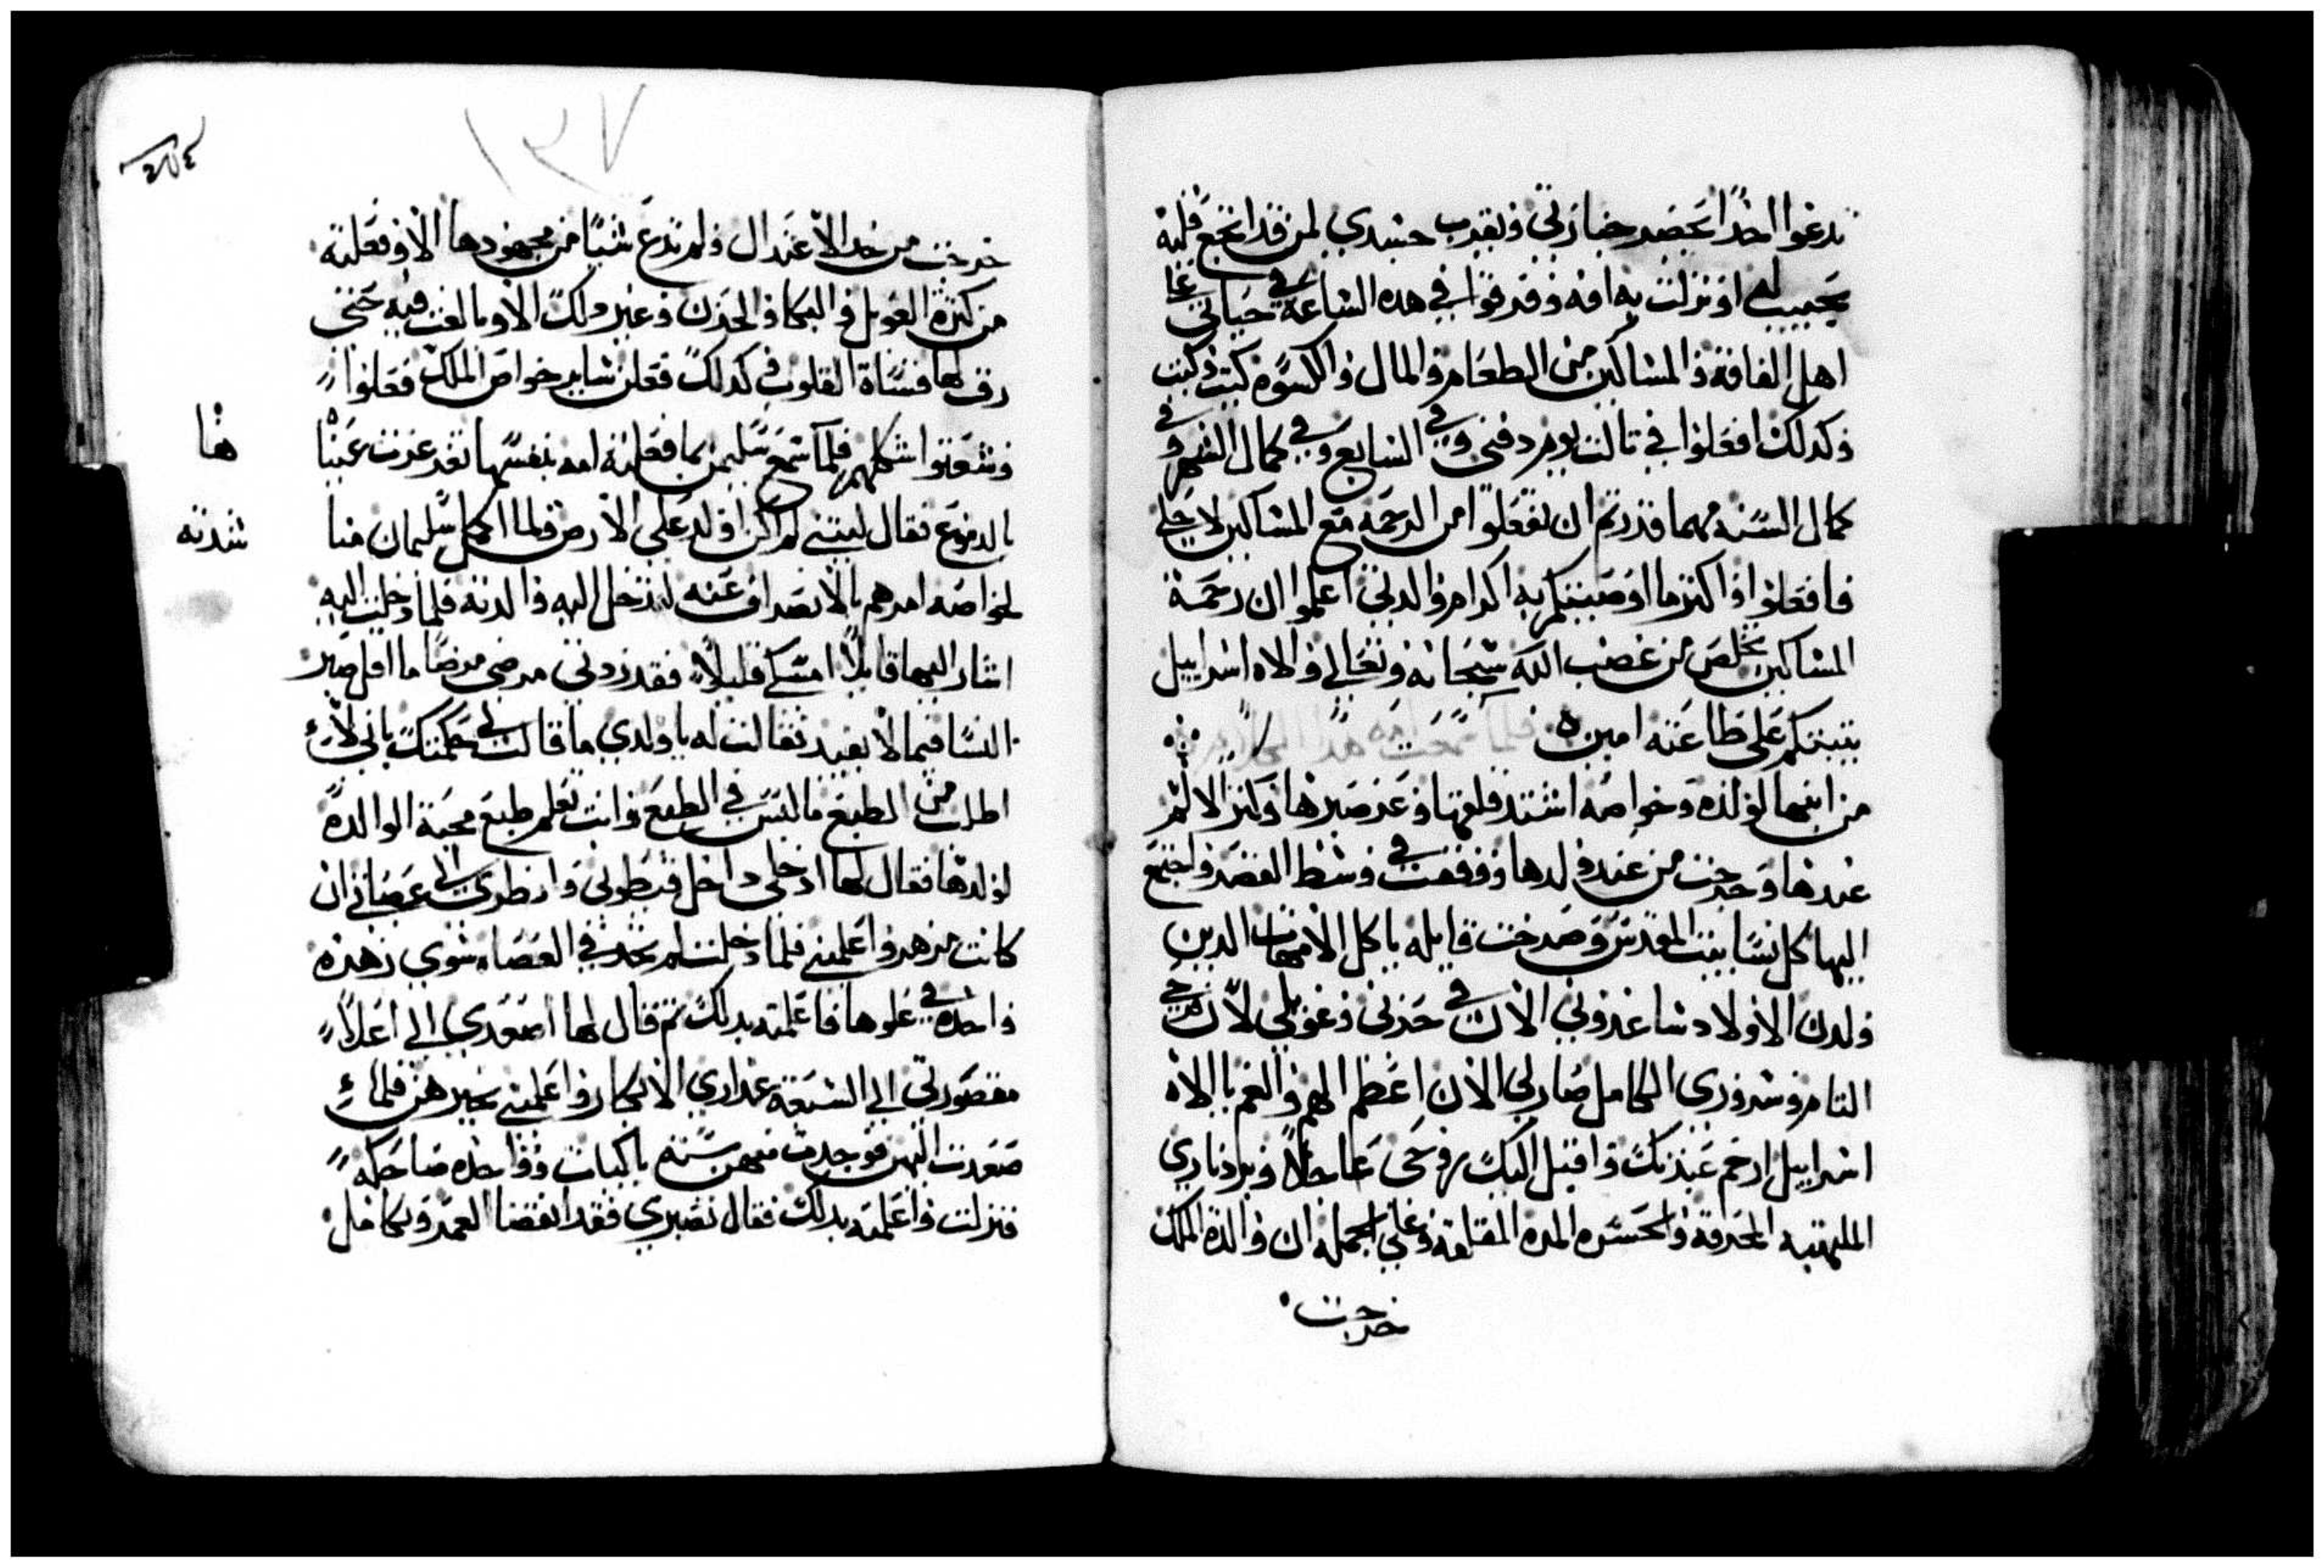 تدعوا احدًا يحضر جنازتي ويقرب جسدي لمن قد انجع قلبه
بحبيب له او نزلت به افه وفرقوا في هده الساعة في حياتي علي
اهل الفاقه والمساكين من الطعام والمال والكسوه كيت وكيت
وكدلك افعلوا في تالت يوم دفني وفي السابع وفي كمال الشهر وفي
كمال السنه مهما قدرتم ان تفعلوا من الرحمه مع المساكين لاجلي
فافعلوا واكتر ما اوصيتكم به اكرام والدتي اعلموا ان رحمة
المساكين تخلص من غضب الله سبحانه وتعالي والاه اسراييل
يتبتكم على طاعته امين ه فلما سمعت امه هدا الكلام
من ابنها لولده وخواصه اشتد قلقها وعز صبرها وتزلزلا لم
عندها وخرجت من عند ولدها ووقفت في وسط القصر واجتمع
اليها كل نسا بيت المقدس وصرخت قايله يا كل الامهات الدين
ولدن الاولاد ساعدوني الان في حزني وعويلي لان فرحي
التام وسروري الكامل صار لي الان اعظم الهم والغم يا الاه
اسراييل ارحم عبدتك واقبل اليك روحى عاجلاً وبرد ناري
الملهبه المحرقه والحسره المره المقلقه وعلي الجمله ان والدة الملك
خرجت
١٢٧
خرجت من حد الاعتدال ولم تدع شيًا من مجهودها الا وفعلته
من كترة العويل والبكا والحزن وغير دلك الا وبالغت فيه حتى
رق لها قساة القلوب وكدلك فعلن ساير خواص الملك فعلوا
وشعتوا شكلهم فلما سمع سليمن بما فعلته امه بنفسها تغرغرت عينا ها
بالدموع فقال ليتني لم اكن اولد على الارض فلما اكمل سليمان منا شدته
لخواصه امرهم بالانصراف عنه لتدخل اليه والدته فلما دخلت اليه
اشار اليها قايلاً امسكي قليلاً فقد زدتي مرضي مرضًا ما اقل صبر
النسا فيما لا يفيد فقالت له يا ولدي ما قالت لي حكمتك باني لا
اطلب من الطبع ما ليس في الطبع وانت تعلم طبع محبة الوالده
لولدها فقال لها ادخلي داخل قيطوني وانظري الى عصاتي ان
كانت مزهره واعلميني فلما دخلت لم تجد في العصاه سوي زهره
واحده في علوها فاعلمته بدلك تم قال لها اصعدي الي اعلا
مقصورتي الي السبعة عداري الابكار واعلميني بخبرهن فلما
صعدت اليهن فوجدت منهن سته باكيات وواحده ضاحكه
فنزلت واعلمته بدلك فقال تصبري فقد انقضا العمر وتكامل